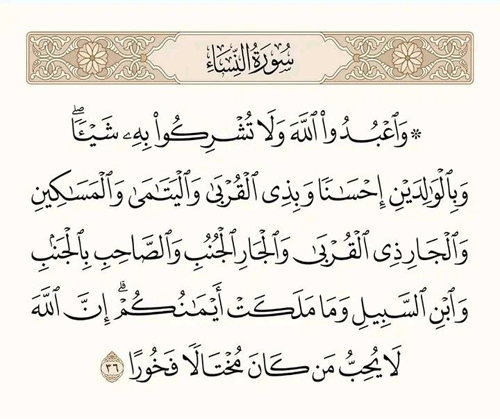 سُورَةُ النِّسَاءِ
۞ وَٱعۡبُدُواْ ٱللَّهَ وَلَا تُشۡرِكُواْ بِهِۦ شَيۡـٔٗاۖ
وَبِٱلۡوَٰلِدَيۡنِ إِحۡسَٰنٗا وَبِذِي ٱلۡقُرۡبَىٰ وَٱلۡيَتَٰمَىٰ وَٱلۡمَسَٰكِينِ
وَٱلۡجَارِ ذِي ٱلۡقُرۡبَىٰ وَٱلۡجَارِ ٱلۡجُنُبِ وَٱلصَّاحِبِ بِٱلۡجَنۢبِ
وَٱبۡنِ ٱلسَّبِيلِ وَمَا مَلَكَتۡ أَيۡمَٰنُكُمۡۗ إِنَّ ٱللَّهَ
لَا يُحِبُّ مَن كَانَ مُخۡتَالٗا فَخُورًا ٣٦